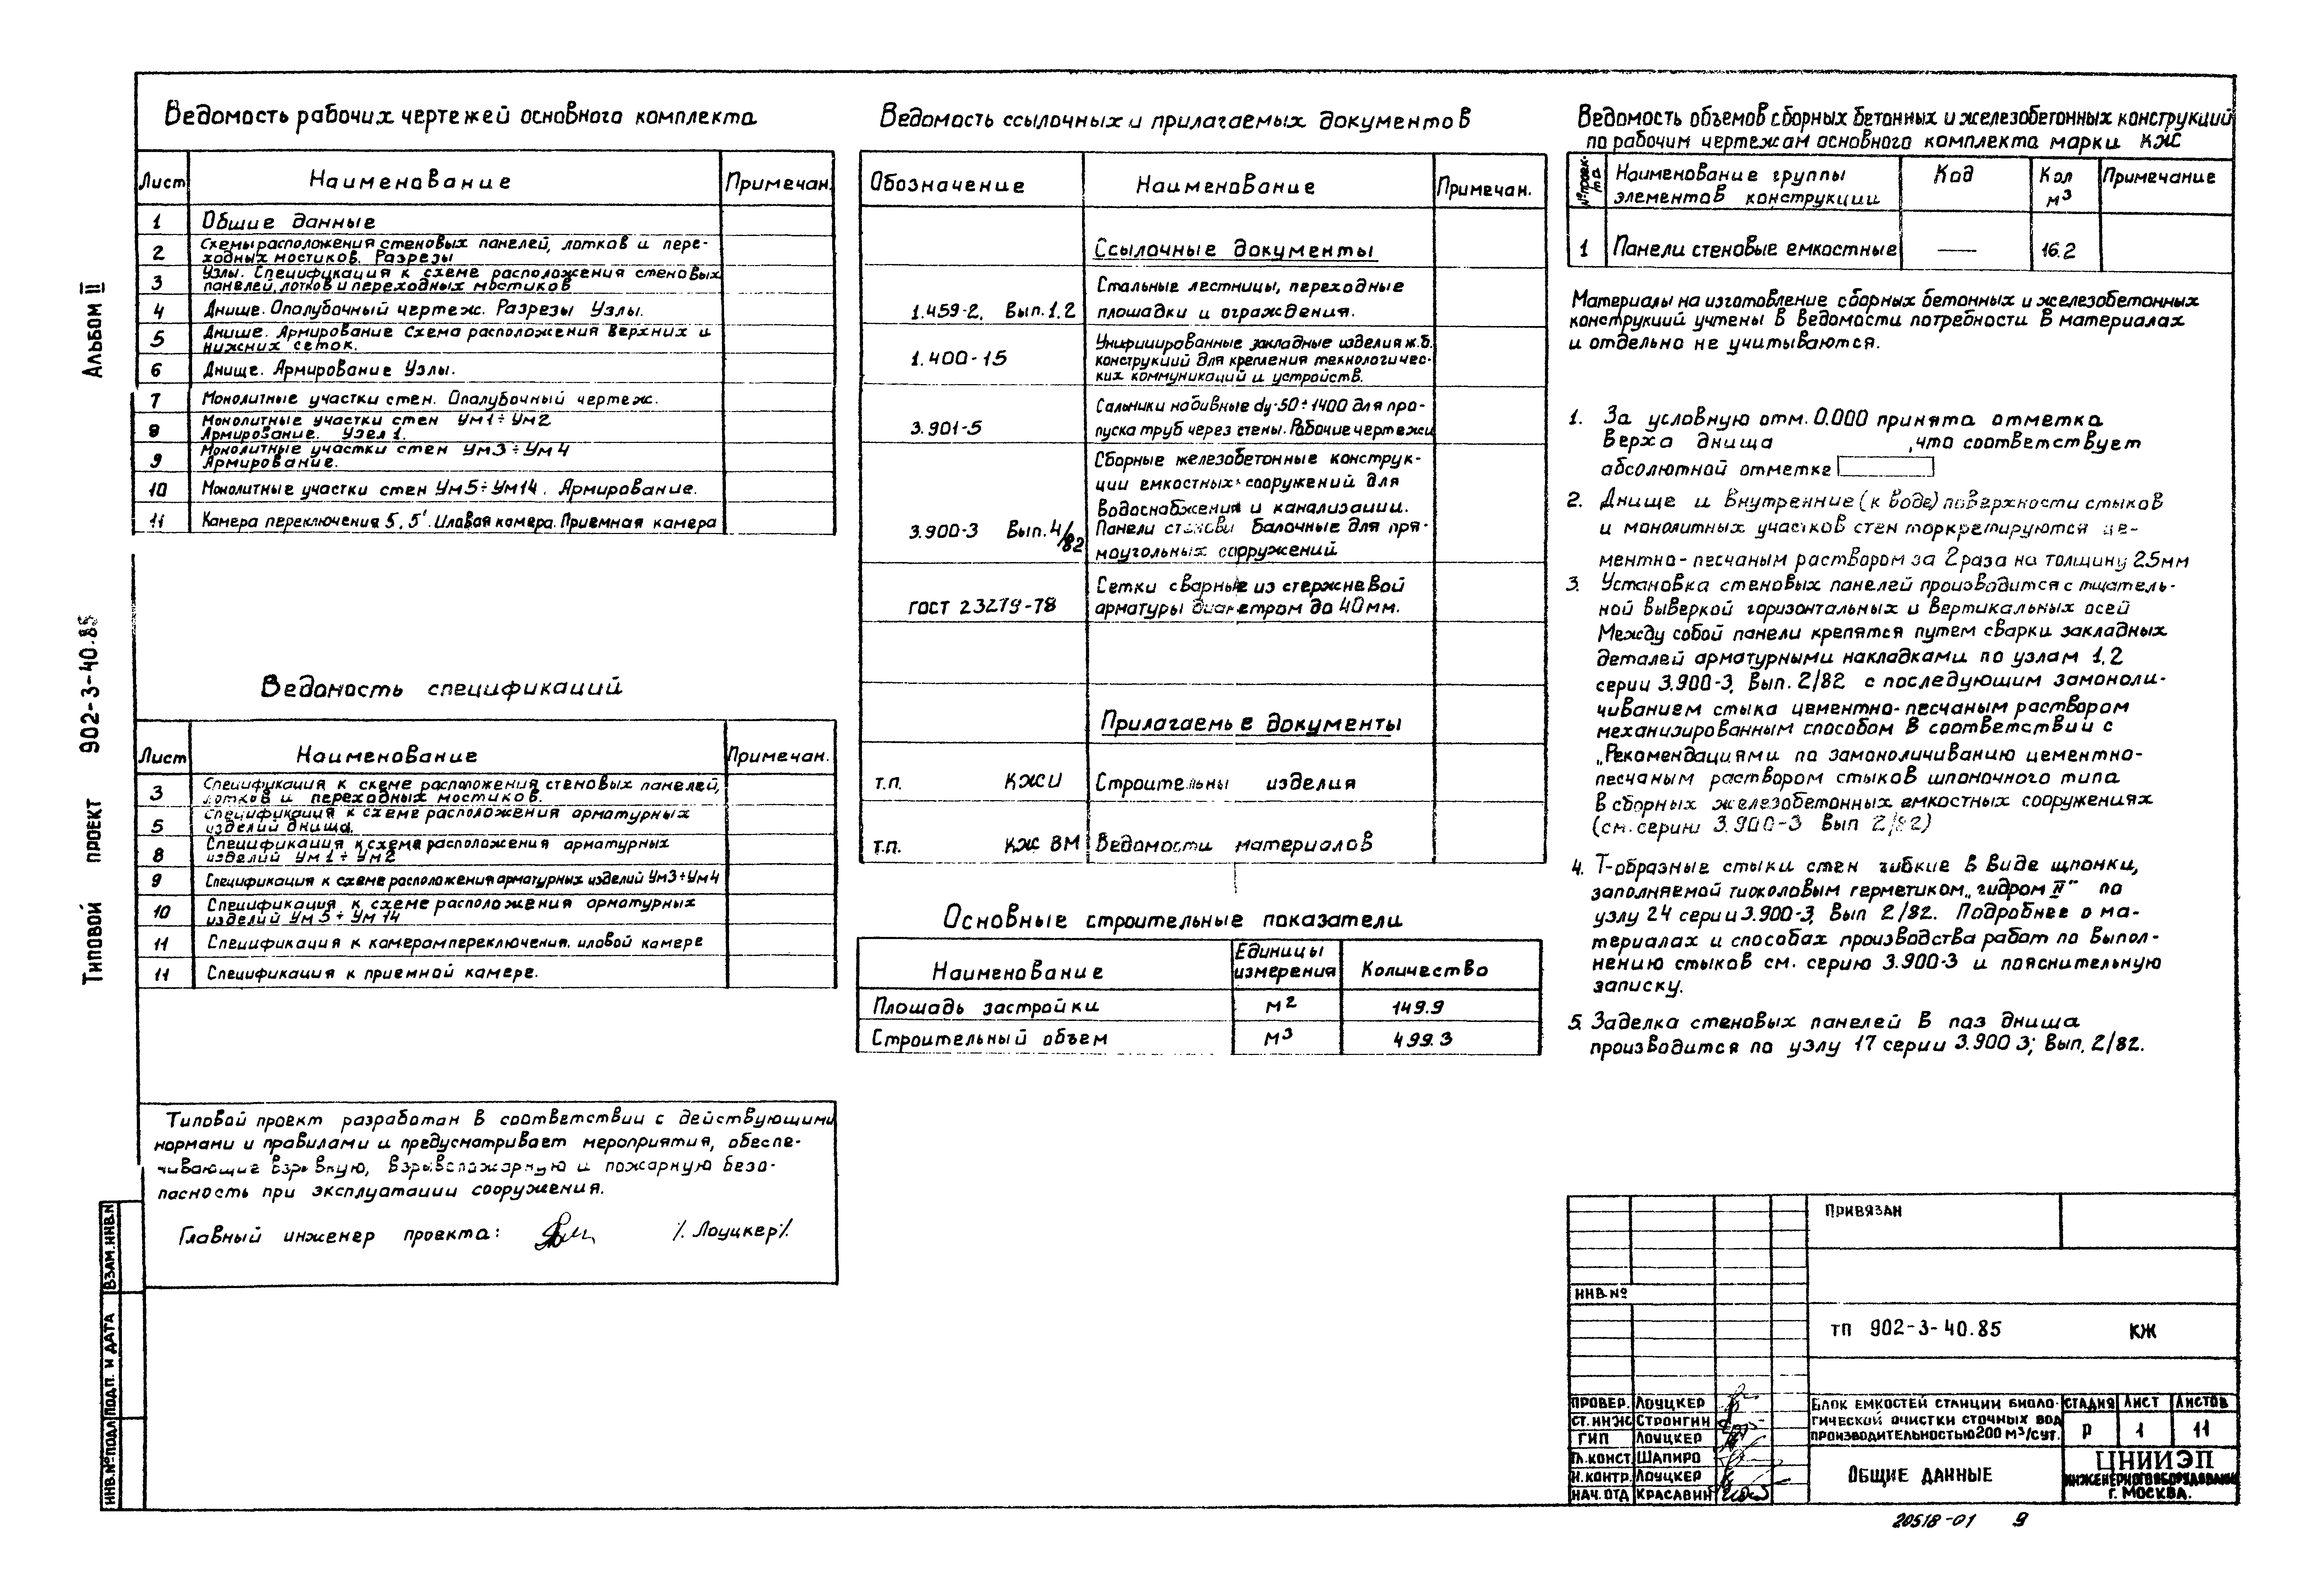 Альбом II
Типовой проект 902-3-40.85
Ведомость рабочих чертежей основного комплекта
Лист Наименование Примечан.
1 Общие данные
2 Схемы расположения стеновых панелей, лотков и пере-
ходных мостиков. Разрезы
3 Узлы. Спецификация к схеме расположения стеновых
панелей, лотков и переходных мостиков
4 Днище. Опалубочный чертеж. Разрезы Узлы.
5 Днище. Армирование Схема расположения верхних и
нижних сеток.
6 Днище. Армирование Узлы.
7 Монолитные участки стен. Опалубочный чертеж.
8 Монолитные участки стен Ум1÷Ум2
Армирование. Узел 1.
9 Монолитные участки стен Ум3÷Ум4
Армирование.
10 Монолитные участки стен Ум5÷Ум14. Армирование.
11 Камера переключения 5, 5'. Иловая камера. Приемная камера
Ведомость спецификаций
Лист Наименование Примечан.
3 Спецификация к схеме расположения стеновых панелей,
лотков и переходных мостиков.
5 Спецификация к схеме расположения арматурных
изделий днища.
8 Спецификация к схема расположения арматурных
изделий Ум1÷Ум2
9 Спецификация к схеме расположения арматурных изделий Ум3÷Ум4
10 Спецификация к схеме расположения арматурных
изделий Ум5÷Ум14
11 Спецификация к камерам переключения. иловой камере
11 Спецификация к приемной камере.
Типовой проект разработан в соответствии с действующими
нормами и правилами и предусматривает мероприятия, обеспе-
чивающие взрывную, взрывопожарную и пожарную безо-
пасность при эксплуатации сооружения.
Главный инженер проекта: /. Лоуцкер/.
Ведомость ссылочных и прилагаемых документов
Обозначение Наименование Примечан.
Ссылочные документы
1.459-2. Вып.1.2 Стальные лестницы, переходные
площадки и ограждения.
1.400-15 Унифицированные закладные изделия ж.б.
конструкций для крепления технологичес-
ких коммуникаций и устройств.
3.901-5 Сальники набивные dy-50÷1400 для про-
пуска труб через стены. Рабочие чертежи
3.900-3 Вып.4/82 Сборные железобетонные конструк-
ции емкостных сооружений для
водоснабжения и канализации.
Панели стеновы балочные для пря-
моугольных сооружений
ГОСТ 23279-78 Сетки сварные из стержневой
арматуры диаметром до 40мм.
Прилагаемые документы
т.п. КЖИ Строительны изделия
т.п. КЖ ВМ Ведомости материалов
Основные строительные показатели
Наименование Единицы измерения Количество
Площадь застройки м² 149.9
Строительный объем м³ 499.3
Ведомость объемов сборных бетонных и железобетонных конструкций
по рабочим чертежам основного комплекта марки КЖ
№ проек-та Наименование группы элементов конструкции Код Кол м³ Примечание
1 Панели стеновые емкостные — 16.2
Материалы на изготовление сборных бетонных и железобетонных
конструкций учтены в ведомости потребности в материалах
и отдельно не учитываются.
1. За условную отм. 0.000 принята отметка
верха днища , что соответствует
абсолютной отметке
2. Днище и внутренние (к воде) поверхности стыков
и монолитных участков стен торкретируются це-
ментно-песчаным раствором за 2 раза на толщину 25мм
3. Установка стеновых панелей производится с тщатель-
ной выверкой горизонтальных и вертикальных осей
Между собой панели крепятся путем сварки закладных
деталей арматурными накладками по узлам 1.2
серии 3.900-3, Вып. 2/82 с последующим замоноли-
чиванием стыка цементно-песчаным раствором
механизированным способом в соответствии с
„Рекомендациями по замоноличиванию цементно-
песчаным раствором стыков шпоночного типа
в сборных железобетонных емкостных сооружениях
(см. серию 3.900-3 Вып 2/82)
4. Т-образные стыки стен гибкие в виде шпонки,
заполняемой тиоколовым герметиком „гидром II" по
узлу 24 серии 3.900-3, Вып 2/82. Подробнее о ма-
териалах и способах производства работ по выпол-
нению стыков см. серию 3.900-3 и пояснительную
записку.
5. Заделка стеновых панелей в паз днища
производится по узлу 17 серии 3.900 3; Вып. 2/82.
Взам. инв. N
Подп. и дата
Инв. № подл
Привязан
Инв. №
ТП 902-3-40.85 КЖ
Провер. Лоуцкер
Ст. инж Стронгин
ГИП Лоуцкер
Гл. конст. Шапиро
Н. контр. Лоуцкер
Нач. отд Красавин
Блок емкостей станции биоло-
гической очистки сточных вод
производительностью 200 м³/сут.
Стадия Лист Листов
Р 1 11
Общие данные
ЦНИИЭП
инженерного оборудования
г. Москва.
20518-01 9